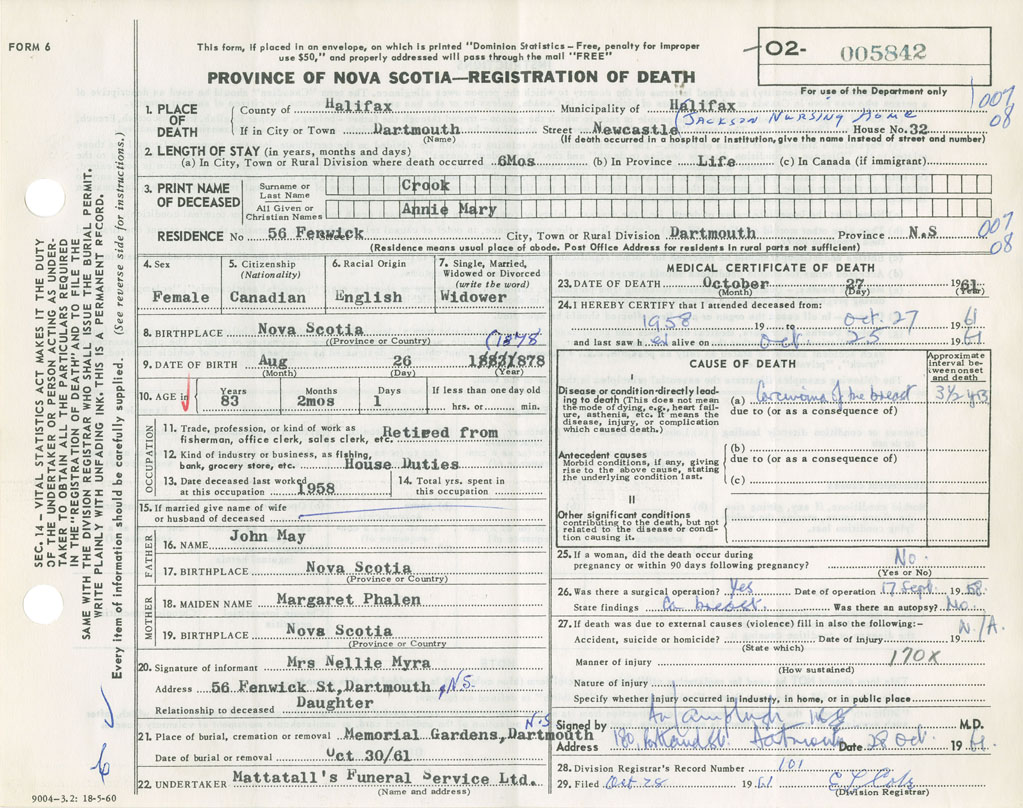 FORM 6
This form, if placed in an envelope, on which is printed "Dominion Statistics – Free, penalty for improper
use $50," and properly addressed will pass through the mail "FREE"
PROVINCE OF NOVA SCOTIA—REGISTRATION OF DEATH
02- 005842
For use of the Department only
007
08
1. PLACE OF DEATH
County of Halifax Municipality of Halifax
(JACKSON NURSING HOME
If in City or Town Dartmouth Street Newcastle House No. 32
(Name) (If death occurred in a hospital or institution, give the name instead of street and number)
2. LENGTH OF STAY (in years, months and days)
(a) In City, Town or Rural Division where death occurred 6Mos (b) In Province Life (c) In Canada (if immigrant)
3. PRINT NAME OF DECEASED
Surname or Last Name Crook
All Given or Christian Names Annie Mary
RESIDENCE No 56 Fenwick City, Town or Rural Division Dartmouth Province N.S
007
08
(Residence means usual place of abode. Post Office Address for residents in rural parts not sufficient)
4. Sex
Female
5. Citizenship
(Nationality)
Canadian
6. Racial Origin
English
7. Single, Married,
Widowed or Divorced
(write the word)
Widower
8. BIRTHPLACE Nova Scotia
((Province or Country)
(1878
9. DATE OF BIRTH Aug 26 1878
(Month) (Day) (Year)
10. AGE in
Years Months Days If less than one day old
83 2mos 1 hrs. or min.
OCCUPATION
11. Trade, profession, or kind of work as
fisherman, office clerk, sales clerk, etc. Retired from
12. Kind of industry or business, as fishing,
bank, grocery store, etc. House Duties
13. Date deceased last worked
at this occupation 1958
14. Total yrs. spent in
this occupation
15. If married give name of wife
or husband of deceased
FATHER
16. NAME John May
17. BIRTHPLACE Nova Scotia
(Province or Country)
MOTHER
18. MAIDEN NAME Margaret Phalen
19. BIRTHPLACE Nova Scotia
(Province or Country
20. Signature of informant Mrs Nellie Myra
Address 56 Fenwick St, Dartmouth, N.S.
Relationship to deceased Daughter
N.S
21. Place of burial, cremation or removal Memorial Gardens, Dartmouth
Date of burial or removal Oct 30/61
22. UNDERTAKER Mattatall's Funeral Service Ltd.
(Name and address)
9004–3.2: 18-5-60
MEDICAL CERTIFICATE OF DEATH
23. DATE OF DEATH October 27 1961
(Month) (Day) (Year)
24. I HEREBY CERTIFY that I attended deceased from:
1958 19 to Oct. 27 1961
and last saw h er alive on Oct. 25 1961
CAUSE OF DEATH
Approximate
interval be-
tween onset
and death
I
Disease or condition directly lead-
ing to death (This does not mean
the mode of dying, e.g., heart fail-
ure, asthenia, etc. It means the
disease, injury, or complication
which caused death.)
(a) Carcinoma of the breast 3½ yrs
due to (or as a consequence of)
Antecedent causes
Morbid conditions, if any, giving
rise to the above cause, stating
the underlying condition last.
(b)
due to (or as a consequence of)
(c)
II
Other significant conditions
contributing to the death, but not
related to the disease or condi-
tion causing it.
25. If a woman, did the death occur during
pregnancy or within 90 days following pregnancy? No.
(Yes or No)
26. Was there a surgical operation? Yes Date of operation 17 Sept. 1958.
State findings Ca breast. Was there an autopsy? No.
27. If death was due to external causes (violence) fill in also the following:—
N/A.
Accident, suicide or homicide? Date of injury 19
(State which)
170X
Manner of injury
(How sustained)
Nature of injury
Specify whether injury occurred in industry, in home, or in public place
Signed by M.D.
Address 180 Portland St. Dartmouth Date 28 Oct. 1961.
28. Division Registrar's Record Number 101
29. Filed Oct 28 1961
(Division Registrar)
SEC. 14 – VITAL STATISTICS ACT MAKES IT THE DUTY
OF THE UNDERTAKER OR PERSON ACTING AS UNDER-
TAKER TO OBTAIN ALL THE PARTICULARS REQUIRED
IN THE "REGISTRATION OF DEATH" AND TO FILE THE
SAME WITH THE DIVISION REGISTRAR WHO SHALL ISSUE THE BURIAL PERMIT.
WRITE PLAINLY WITH UNFADING INK. THIS IS A PERMANENT RECORD.
Every item of information should be carefully supplied. (See reverse side for instructions.)